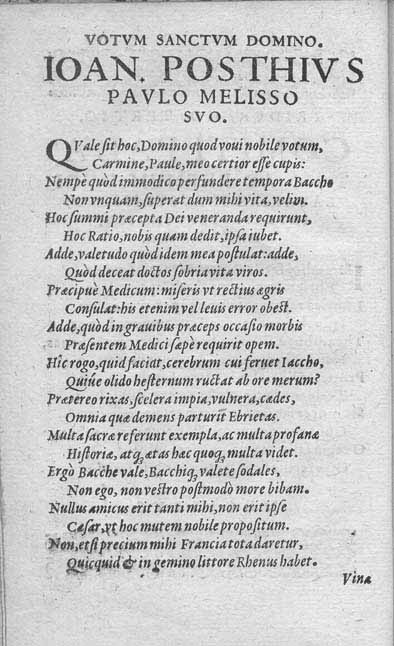 VOTVM SANCTVM DOMINO.
IOAN. POSTHIVS
PAVLO MELISSO
SVO.
QVale sit hoc, Domino quod voui nobile votum,
Carmine, Paule, meo certior esse cupis:
Nempè quòd immodico perfundere tempora Baccho
Non vnquam, superat dum mihi vita, velim.
Hoc summi præcepta Dei veneranda requirunt,
Hoc Ratio, nobis quam dedit, ipsa iubet.
Adde, valetudo quòd idem mea postulat: adde,
Quòd deceat doctos sobria vita viros.
Præcipuè Medicum: miseris vt rectius ægris
Consulat: his etenim vel leuis error obest.
Adde, quòd in grauibus præceps occasio morbis
Præsentem Medici sæpè requirit opem.
Hîc rogo, quid faciat, cerebrum cui feruet Iaccho,
Quiúe olido hesternum ructat ab ore merum?
Prætereo rixas, scelera impia, vulnera, cædes,
Omnia quæ demens parturit Ebrietas.
Multa sacræ referunt exempla, ac multa profanæ
Historiæ, atq; ætas hæc quoq; multa videt.
Ergò Bacche vale, Bacchiq; valete sodales,
Non ego, non vestro postmodò more bibam.
Nullus amicus erit tanti mihi, non erit ipse
Cæsar, vt hoc mutem nobile propositum.
Non, etsi precium mihi Francia tota daretur,
Quicquid & in gemino littore Rhenus habet.
Vina